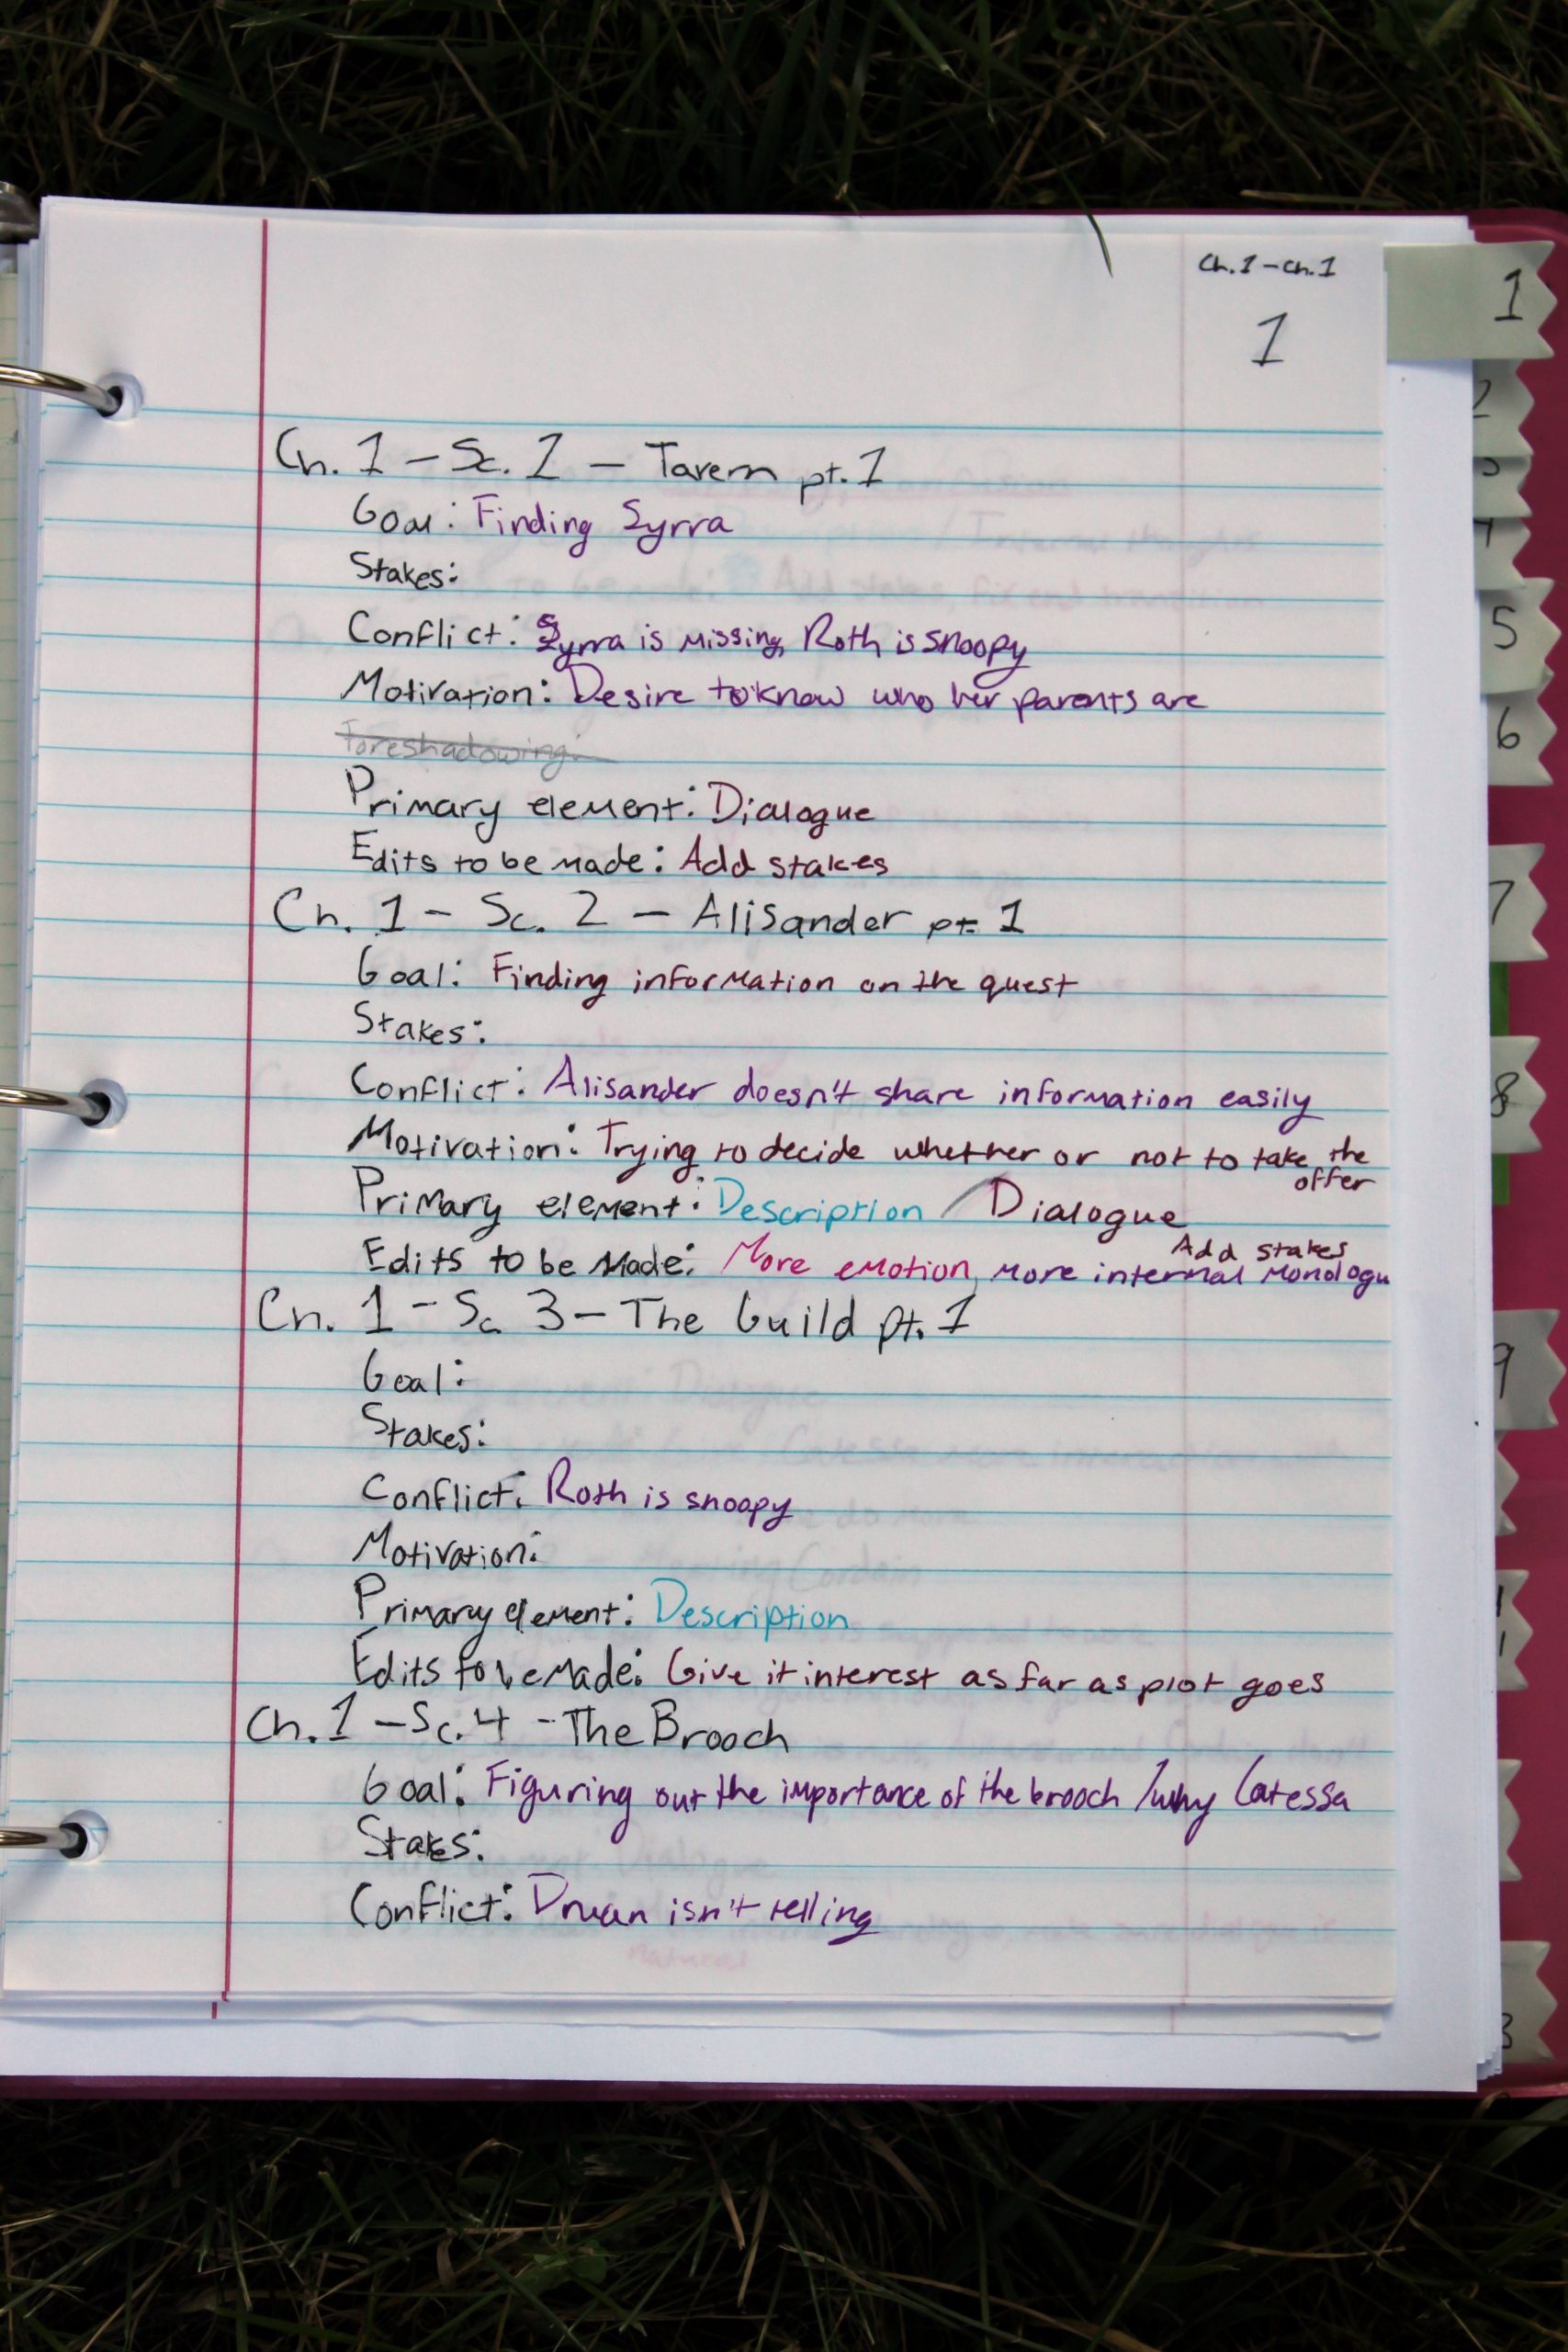 Ch. 1 - Ch. 1
1
1
Ch. 1 - Sc. 1 - Tavern pt. 1
Goal: Finding Syrra
Stakes:
Conflict: Syrra is missing, Roth is snoopy
Motivation: Desire to know who her parents are
Foreshadowing:
Primary element: Dialogue
Edits to be made: Add stakes
Ch. 1 - Sc. 2 - Alisander pt. 1
Goal: Finding information on the quest
Stakes:
Conflict: Alisander doesn't share information easily
Motivation: Trying to decide whether or not to take the
offer
Primary element: Description / Dialogue
Add stakes
Edits to be made: More emotion, more internal monologu
Ch. 1 - Sc 3 - The Guild pt. 1
Goal:
Stakes:
Conflict: Roth is snoopy
Motivation:
Primary element: Description
Edits to be made: Give it interest as far as plot goes
Ch. 1 - Sc. 4 - The Brooch
Goal: Figuring out the importance of the brooch / why Catessa
Stakes:
Conflict: isn't telling
2
5
6
7
8
9